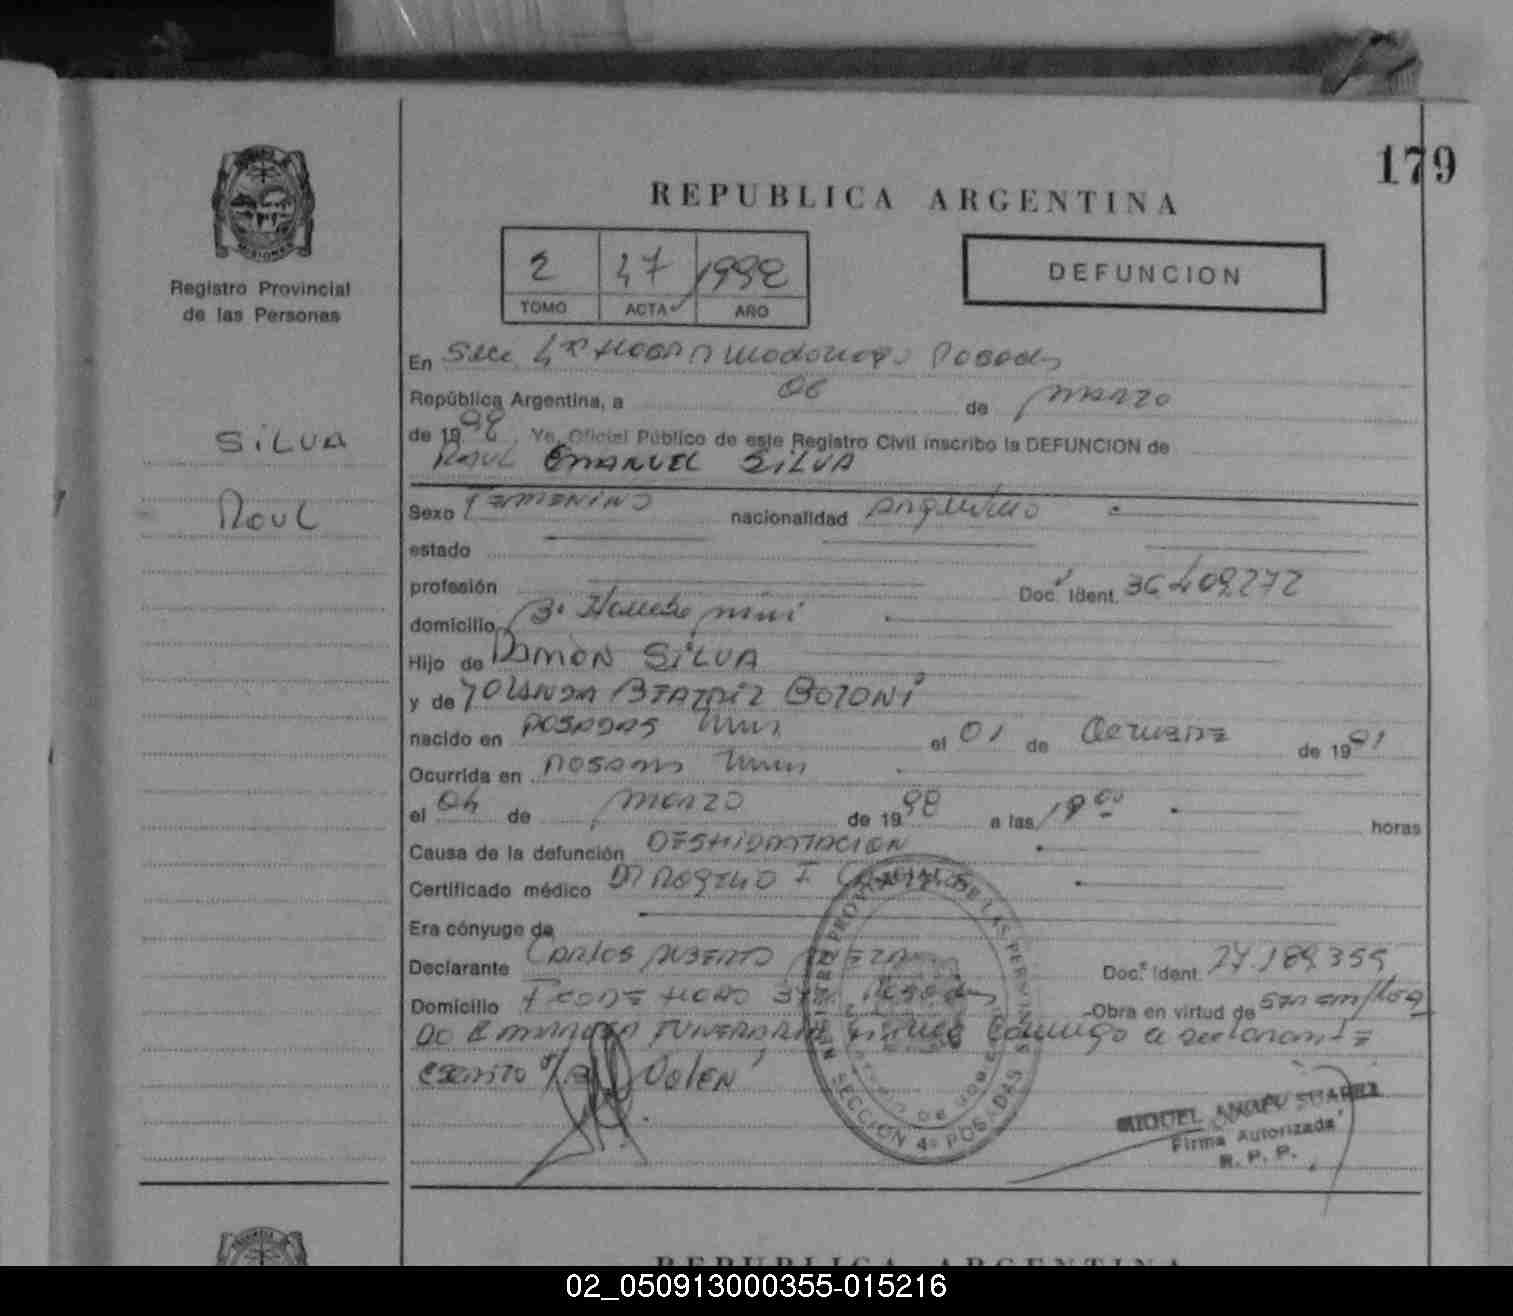 179
REPUBLICA ARGENTINA
2 47 1992
TOMO ACTA AÑO
DEFUNCION
Registro Provincial
de las Personas
SILVA
RAUL
En Secc 4ta Posadas
República Argentina, a 06 de marzo
de 1992, Yo, Oficial Público de este Registro Civil inscribo la DEFUNCION de
RAUL EMANUEL SILVA
Sexo FEMENINO nacionalidad Argentino
estado
profesión Doc. Ident. 36409272
domicilio
Hijo de RAMON SILVA
y de YOLANDA BEATRIZ BOTONI
nacido en POSADAS Mnes el 01 de de 1991
Ocurrida en POSADAS Mnes
el 04 de marzo de 1992 a las horas
Causa de la defunción DESHIDRATACION
Certificado médico DR ROGELIO F
Era cónyuge de
Declarante CARLOS ALBERTO Doc. Ident. 27.189.355
Domicilio Posadas Obra en virtud de ser emplea
DO FUNERARIA conmigo a declarante
escrito
REGISTRO PROVINCIAL DE LAS PERSONAS
SECCION 4a POSADAS
MIGUEL ANGEL SUAREZ
Firma Autorizada
R. P. P.
REPUBLICA ARGENTINA
02_050913000355-015216